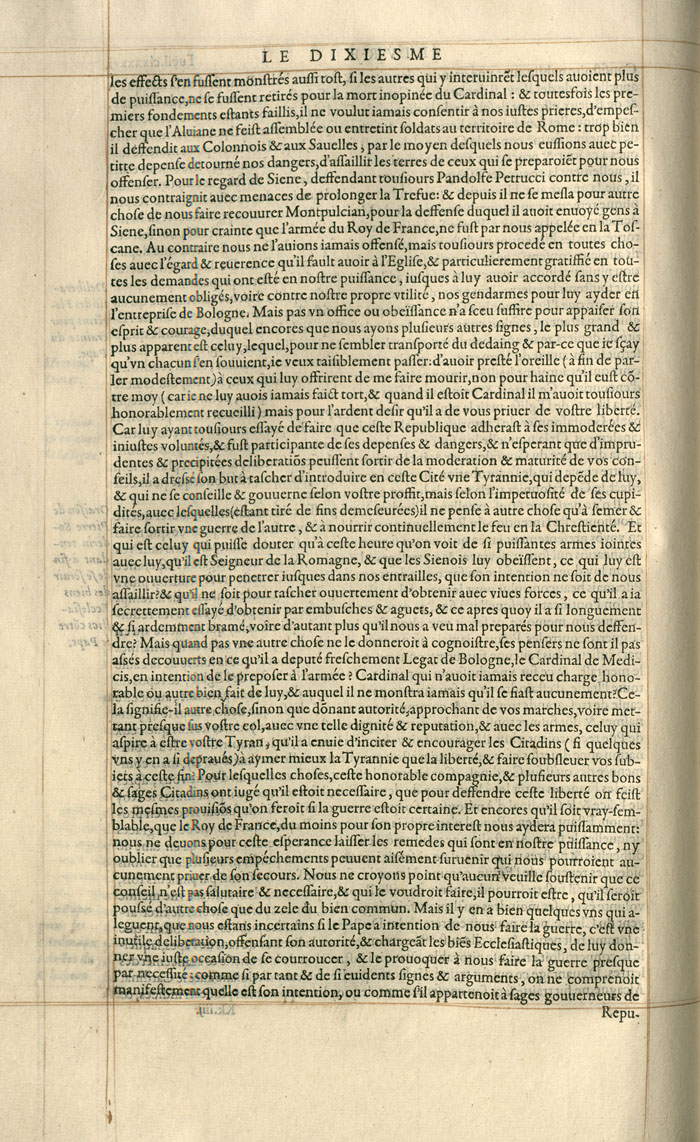 LE DIXIESME
les effects s'en fussent monstrés aussi tost, si les autres qui y interuinrẽt lesquels auoient plus
de puissance, ne se fussent retirés pour la mort inopinée du Cardinal : & toutesfois les pre-
miers fondements estants faillis, il ne voulut iamais consentir à nos iustes prieres, d'empes-
cher que l'Aluiane ne feist assemblée ou entretint soldats au territoire de Rome : trop bien
il deffendit aux Colonnois & aux Sauelles, par le moyen desquels nous eussions auec pe-
titte depense detourné nos dangers, d'assaillir les terres de ceux qui se preparoiẽt pour nous
offenser. Pour le regard de Siene, deffendant tousiours Pandolfe Petrucci contre nous, il
nous contraignit auec menaces de prolonger la Trefue: & depuis il ne se mesla pour autre
chose de nous faire recouurer Montpulcian, pour la deffense duquel il auoit enuoyé gens à
Siene, sinon pour crainte que l'armée du Roy de France, ne fust par nous appelée en la Tos-
cane. Au contraire nous ne l'auions iamais offensé, mais tousiours procedé en toutes cho-
ses auec l'égard & reuerence qu'il fault auoir à l'Eglise, & particulierement gratiffié en tou-
tes les demandes qui ont esté en nostre puissance, iusques à luy auoir accordé sans y estre
aucunement obligés, voire contre nostre propre vtilité, nos gendarmes pour luy ayder en
l'entreprise de Bologne. Mais pas vn office ou obeïssance n'a sceu suffire pour appaiser son
esprit & courage, duquel encores que nous ayons plusieurs autres signes, le plus grand &
plus apparent est celuy, lequel, pour ne sembler transporté du dedaing & par-ce que ie sçay
qu'vn chacun s'en souuient, ie veux taisiblement passer: d'auoir presté l'oreille (à fin de par-
ler modestement) à ceux qui luy offrirent de me faire mourir, non pour haine qu'il eust cõ-
tre moy (car ie ne luy auois iamais faict tort, & quand il estoit Cardinal il m'auoit tousiours
honorablement recueilli) mais pour l'ardent desir qu'il a de vous priuer de vostre liberté.
Car luy ayant tousiours essayé de faire que ceste Republique adherast à ses immoderées &
iniustes voluntés, & fust participante de ses depenses & dangers, & n'esperant que d'impru-
dentes & precipitées deliberatiõs peussent sortir de la moderation & maturité de vos con-
seils, il a dressé son but à tascher d'introduire en ceste Cité vne Tyrannie, qui depẽde de luy,
& qui ne se conseille & gouuerne selon vostre proffit, mais selon l'impetuosité de ses cupi-
dités, auec lesquelles (estant tiré de fins demeseurées) il ne pense à autre chose qu'à semer &
faire sortir vne guerre de l'autre, & à nourrir continuellement le feu en la Chrestienté. Et
qui est celuy qui puisse douter qu'à ceste heure qu'on voit de si puissantes armes iointes
auec luy, qu'il est Seigneur de la Romagne, & que les Sienois luy obeïssent, ce qui luy est
vne ouuerture pour penetrer iusques dans nos entrailles, que son intention ne soit de nous
assaillir? & qu'il ne soit pour tascher ouuertement d'obtenir auec viues forces, ce qu'il a ia
secrettement essayé d'obtenir par embusches & aguets, & ce apres quoy il a si longuement
& si ardemment bramé, voire d'autant plus qu'il nous a veu mal preparés pour nous deffen-
dre? Mais quand pas vne autre chose ne le donneroit à cognoistre, ses pensers ne sont il pas
assés decouuerts en ce qu'il a deputé freschement Legat de Bologne, le Cardinal de Medi-
cis, en intention de le preposer à l'armée ? Cardinal qui n'auoit iamais receu charge hono-
rable ou autre bien fait de luy, & auquel il ne monstra iamais qu'il se fiast aucunement? Ce-
la signifie-il autre chose, sinon que dõnant autorité, approchant de vos marches, voire met-
tant presque sus vostre col, auec vne telle dignité & reputation, & auec les armes, celuy qui
aspire à estre vostre Tyran, qu'il a enuie d'inciter & encourager les Citadins (si quelques
vns y en a si deprauès) à aymer mieux la Tyrannie que la liberté, & faire soubsleuer vos sub-
iets à ceste fin? Pour lesquelles choses, ceste honorable compagnie, & plusieurs autres bons
& sages Citadins ont iugé qu'il estoit necessaire, que pour deffendre ceste liberté on feist
les mesmes prouisiõs qu'on feroit si la guerre estoit certaine. Et encores qu'il soit vray-sem-
blable, que le Roy de France, du moins pour son propre interest nous aydera puissamment:
nous ne deuons pour ceste esperance laisser les remedes qui sont en nostre puissance, ny
oublier que plusieurs empéchements peuuent aisément suruenir qui nous pourroient au-
cunement priuer de son secours. Nous ne croyons point qu'aucun veuille soustenir que ce
conseil n'est pas salutaire & necessaire, & qui le voudroit faire, il pourroit estre, qu'il seroit
poussé d'autre chose que du zele du bien commun. Mais il y en a bien quelques vns qui a-
leguent, que nous estans incertains si le Pape a intention de nous faire la guerre, c'est vne
inutile deliberation, offensant son autorité, & chargeãt les biẽs Ecclesiastiques, de luy don-
ner vne iuste occasion de se courroucer, & le prouoquer à nous faire la guerre presque
par necessité : comme si par tant & de si euidents signes & arguments, on ne comprenoit
manifestement quelle est son intention, ou comme s'il appartenoit à sages gouuerneurs de
Repu-